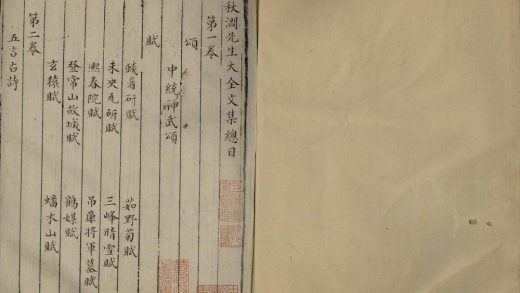 秋澗先生大全文集總目
第一卷
頌
中統神武頌
賦
鹹着研賦 茹野菊賦
未央瓦研賦 三峰晴雪賦
熙春院賦 吊廉將軍墓賦
登常山故城賦 鶴媒賦
玄猿賦 蟠木山賦
第二卷
五言古詩